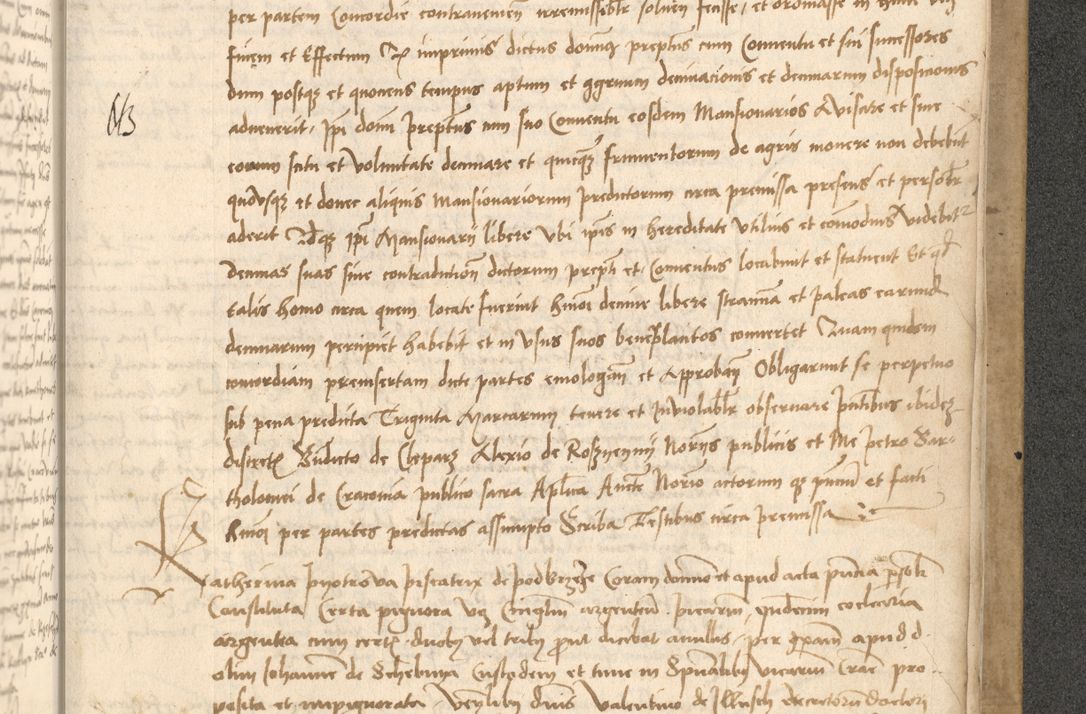 per partem Concordie contravenien irremissibilr solven fecisse, et ordinasse in hunc
finem et Effectum Qr imprimis dictus domnus prepitus cum Conventu et sui successores
dum postqz et quociens tempus aptum et ggruum decimacionis et decimarum disposicionis
advenerit, Ipi domi prepitus cum suo Conventu eosdem Mansionarios Avisare et sine
eorum scitu et voluntate decimare et quicqz frumentorum de agris movere non debebit
quovsqz et donec aliquis Mansionariorum predictorum circa premissa presens et personalr
aderit Idqz ipi Mansionarij libere vbi ipis in hereditate vtilius et comodius videbitr
Decimas suas sine contradiction dictorum prepti et Conventus locabunt et statuent Et qd
talis homo circa quem locate fuerint hmoi decime libere stramina et paleas earund
decimarum percipiet habebit et in vsus suos beneplacitos convertet Quam quidem
concordiam preinsertam dicte partes emologan et Approban Obligarunt se perpetuo
sub pena predicta Triginta Marcarum tenere et Inviolabilr observare pntibus ibidez
discretis Budicto de Cleparz Alexio de Roznyeny Notarys publicis et Me petro Bar-
tholomei de Cracovia publico sacra Aplica Aucte Notario actorum qz pncium et facti
hmoi per partes predictas assumpto Scriba Testibus circa premissa
Katherina pyotrova piscatrix de podbrzeze Coram domno et apud acta pncia psonlr
Constituta Certa pignora vz Cinglum argenteum, picarium, quindecim coclearia
argentea cum certis duobus vel tribus prout dicebat anulis, per ipam apud d.
olim Johannem de Schebnya Custodem et tunc in Spiritualibus vicarium Crac pro-
posita et impignorata venlibus dnis valentino de Jlkusch decretorum doctori